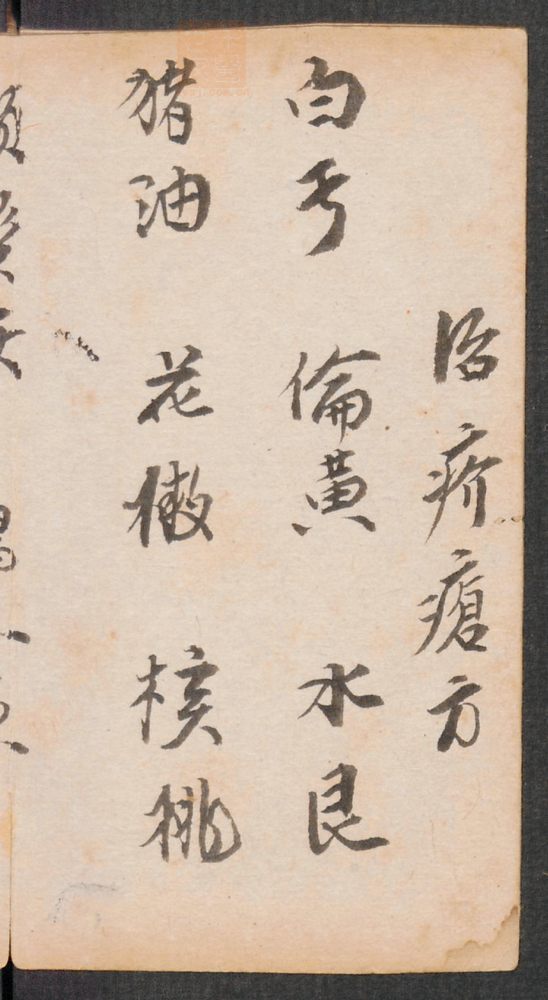 治疥瘡方
白丐 倫黃 水艮
猪油 花椒 核桃